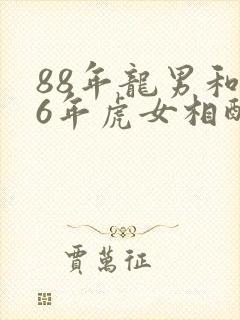 88年龍男和
6年虎女相配
賈萬征